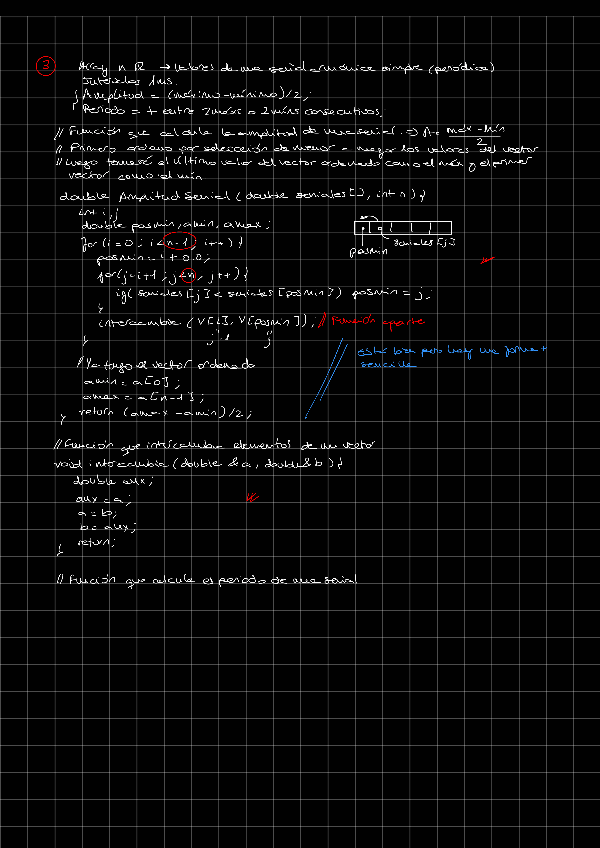 ③ Array n R → valores de una señal armónica simple (periódica)
Intervalos 1ms.
Amplitud = (máximo-mínimo)/2;
Periodo = t entre 2 máx o 2 míns consecutivos.
// Función que calcula la amplitud de una señal. => A = máx - mín / 2
// Primero ordeno por selección de menor a mayor los valores del vector
// Luego tomaré el último valor del vector ordenado como el máx y el primer
vector como el mín
double AmplitudSenial (double seniales[], int n) {
int i,j
double posmin, amin, amax;
for (i = 0; i < n-1; i++) {
posmin = i + 0.0;
for (j = i+1; j < n; j++) {
if (seniales[j] < seniales[posmin]) posmin = j;
}
intercambia (V[i], V[posmin]); // Función aparte
}
posmin
seniales[j]
está bien pero hay una forma +
sencilla
// Ya tengo el vector ordenado
amin = a[0];
amax = a[n-1];
return (amax - amin)/2;
}
// Función que intercambia elementos de un vector
void intercambia (double &a, double &b) {
double aux;
aux = a;
a = b;
b = aux;
return;
}
// Función que calcula el periodo de una señal